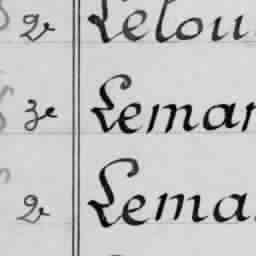 2e Lelou
3e Lemar
2e Lema